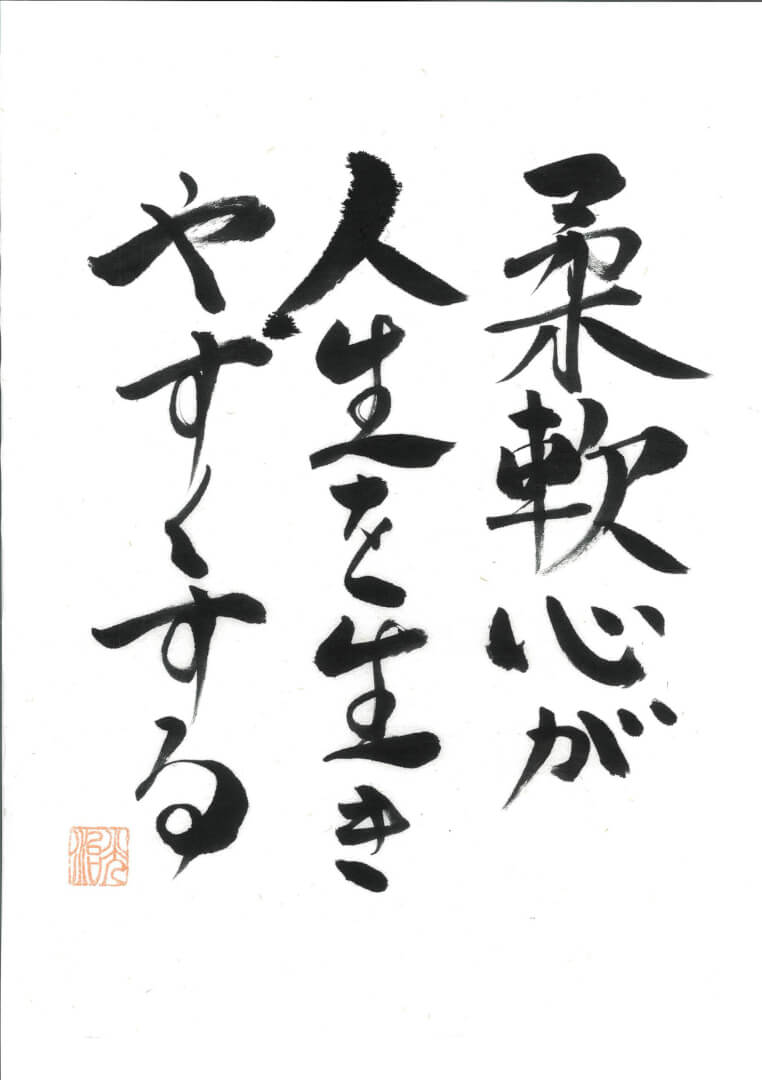 柔軟心が
人生を生き
やすくする